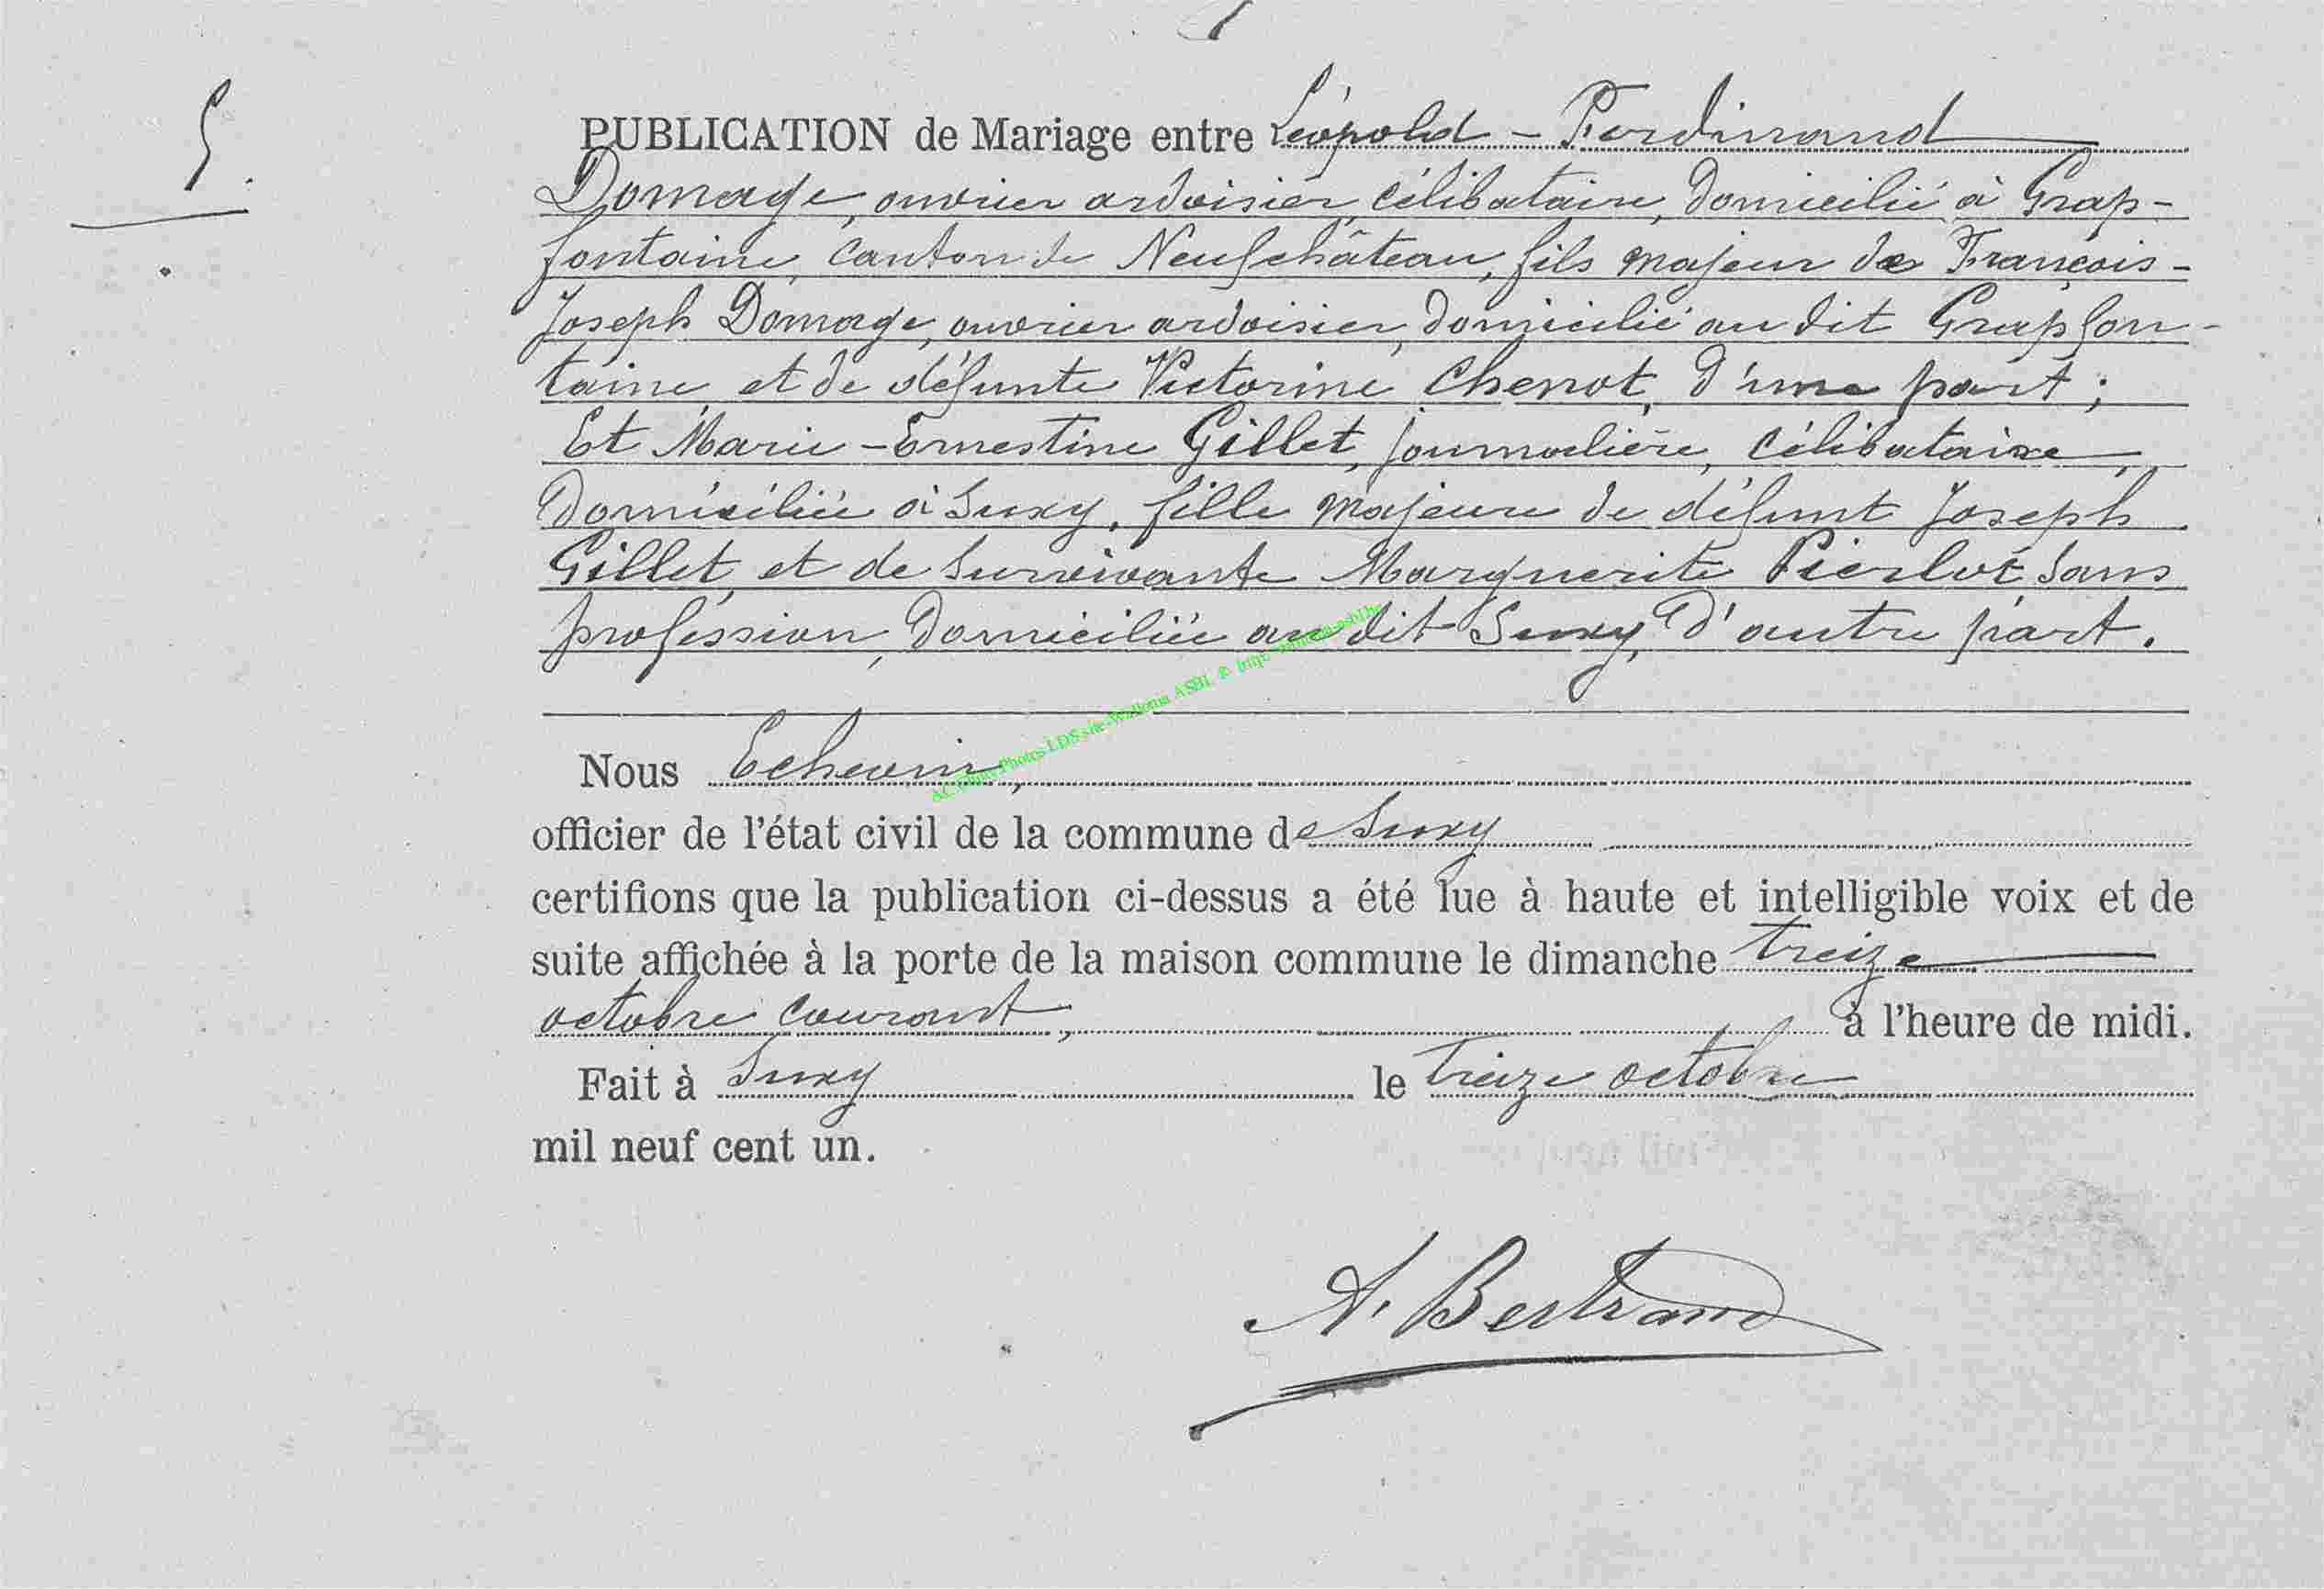 5.
PUBLICATION de Mariage entre Léopold - Ferdinand
Domage, ouvrier ardoisier, célibataire, domicilié à Grap-
fontaine, canton de Neufchâteau, fils majeur de François-
Joseph Domage, ouvrier ardoisier, domicilié au dit Grapfon-
taine et de défunte Victorine Chenot, d'une part ;
Et Marie-Ernestine Gillet, journalière, célibataire,
domiciliée à Suxy, fille majeure de défunt Joseph
Gillet, et de survivante Marguerite Pierlot sans
profession, domiciliée au dit Suxy, d'autre part.
Nous Echevin,
officier de l'état civil de la commune de Suxy
certifions que la publication ci-dessus a été lue à haute et intelligible voix et de
suite affichée à la porte de la maison commune le dimanche treize
octobre courant, à l'heure de midi.
Fait à Suxy le treize octobre
mil neuf cent un.
A. Bertrand